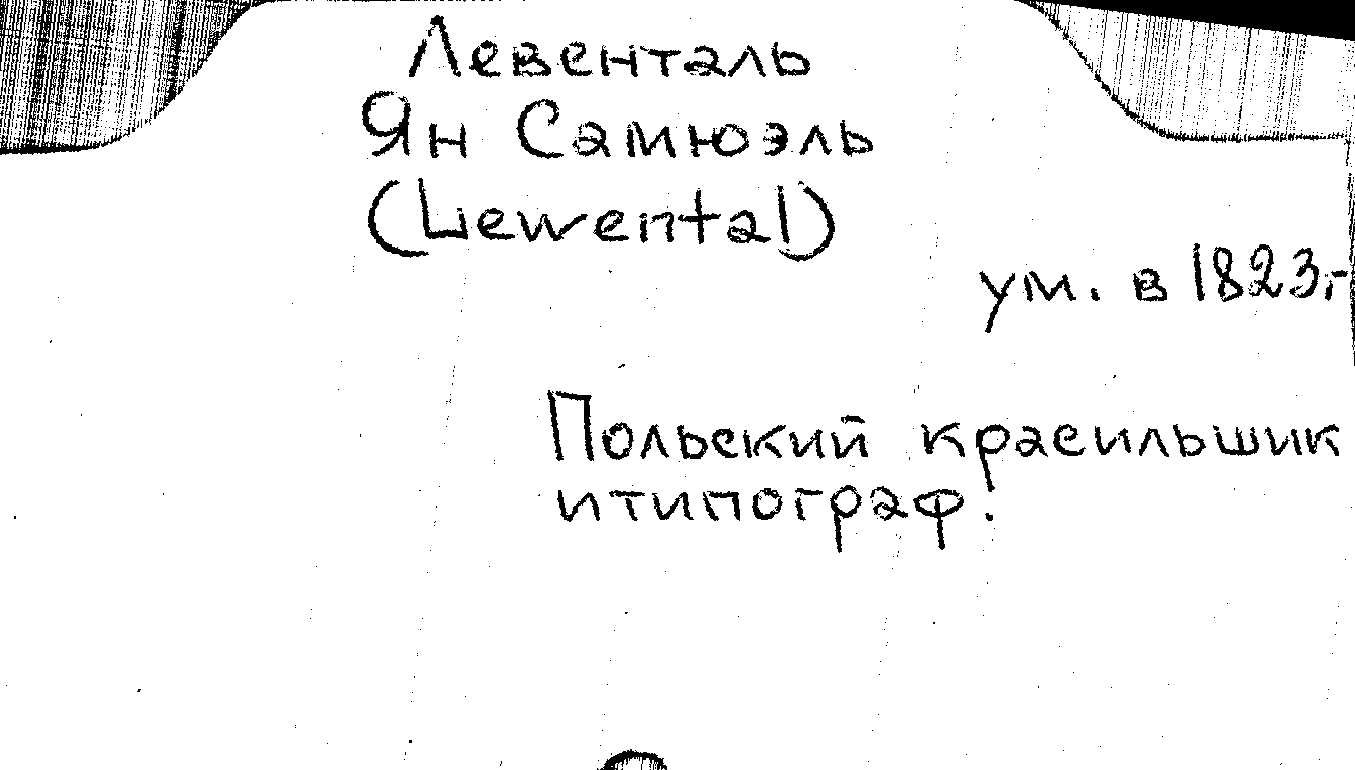 Левенталь
Ян Самюэль
(Lewental)
ум. в 1823г.
Польский красильшик
и типограф.